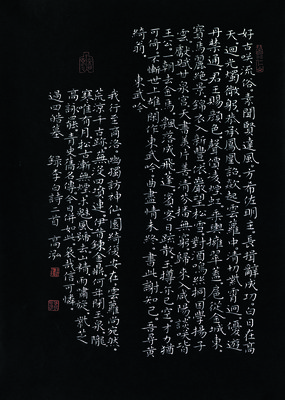 好古笑流俗素聞賢達風方希佐明主長揖辭成功白日在高
天迴光燭微躬恭承鳳凰詔欻起雲蘿中清切紫霄迥優遊
丹禁通君王賜顏色聲價凌煙虹乘輿擁翠蓋扈從金城東
寶馬麗絕景錦衣入新豐依巖望松雪對酒鳴絲桐因學揚子
雲獻賦甘泉宮天書美片善清芬播無窮歸來入咸陽談笑皆
王公一朝去金馬飄落成飛蓬賓客日疏散玉樽亦已空才力猶
可倚不慚世上雄閑作東武吟曲盡情未終書此謝知己吾尋黃
綺翁 東武吟
我行至商洛幽獨訪神仙園綺復安在雲蘿尚宛然
荒涼千古跡蕪沒四墳連伊昔鍊金鼎何年閉玉泉隴
寒惟有月松古漸無煙木魅風號去山精雨嘯旋紫芝
高詠罷青史舊名傳今日并如此哀哉信可憐
過四皓墓 錄李白詩二首 高泓